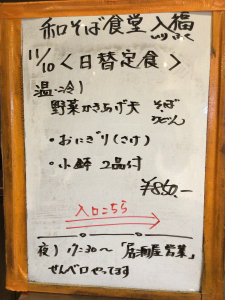 和そば食堂 入福
いりふく
11/10 <日替定食>
温・冷)
野菜かきあげ天 そば
うどん
・おにぎり(さけ)
・小鉢 2品付
¥850.-
入口こちら
夜) 17:30〜「居酒屋営業」
せんべろやってます